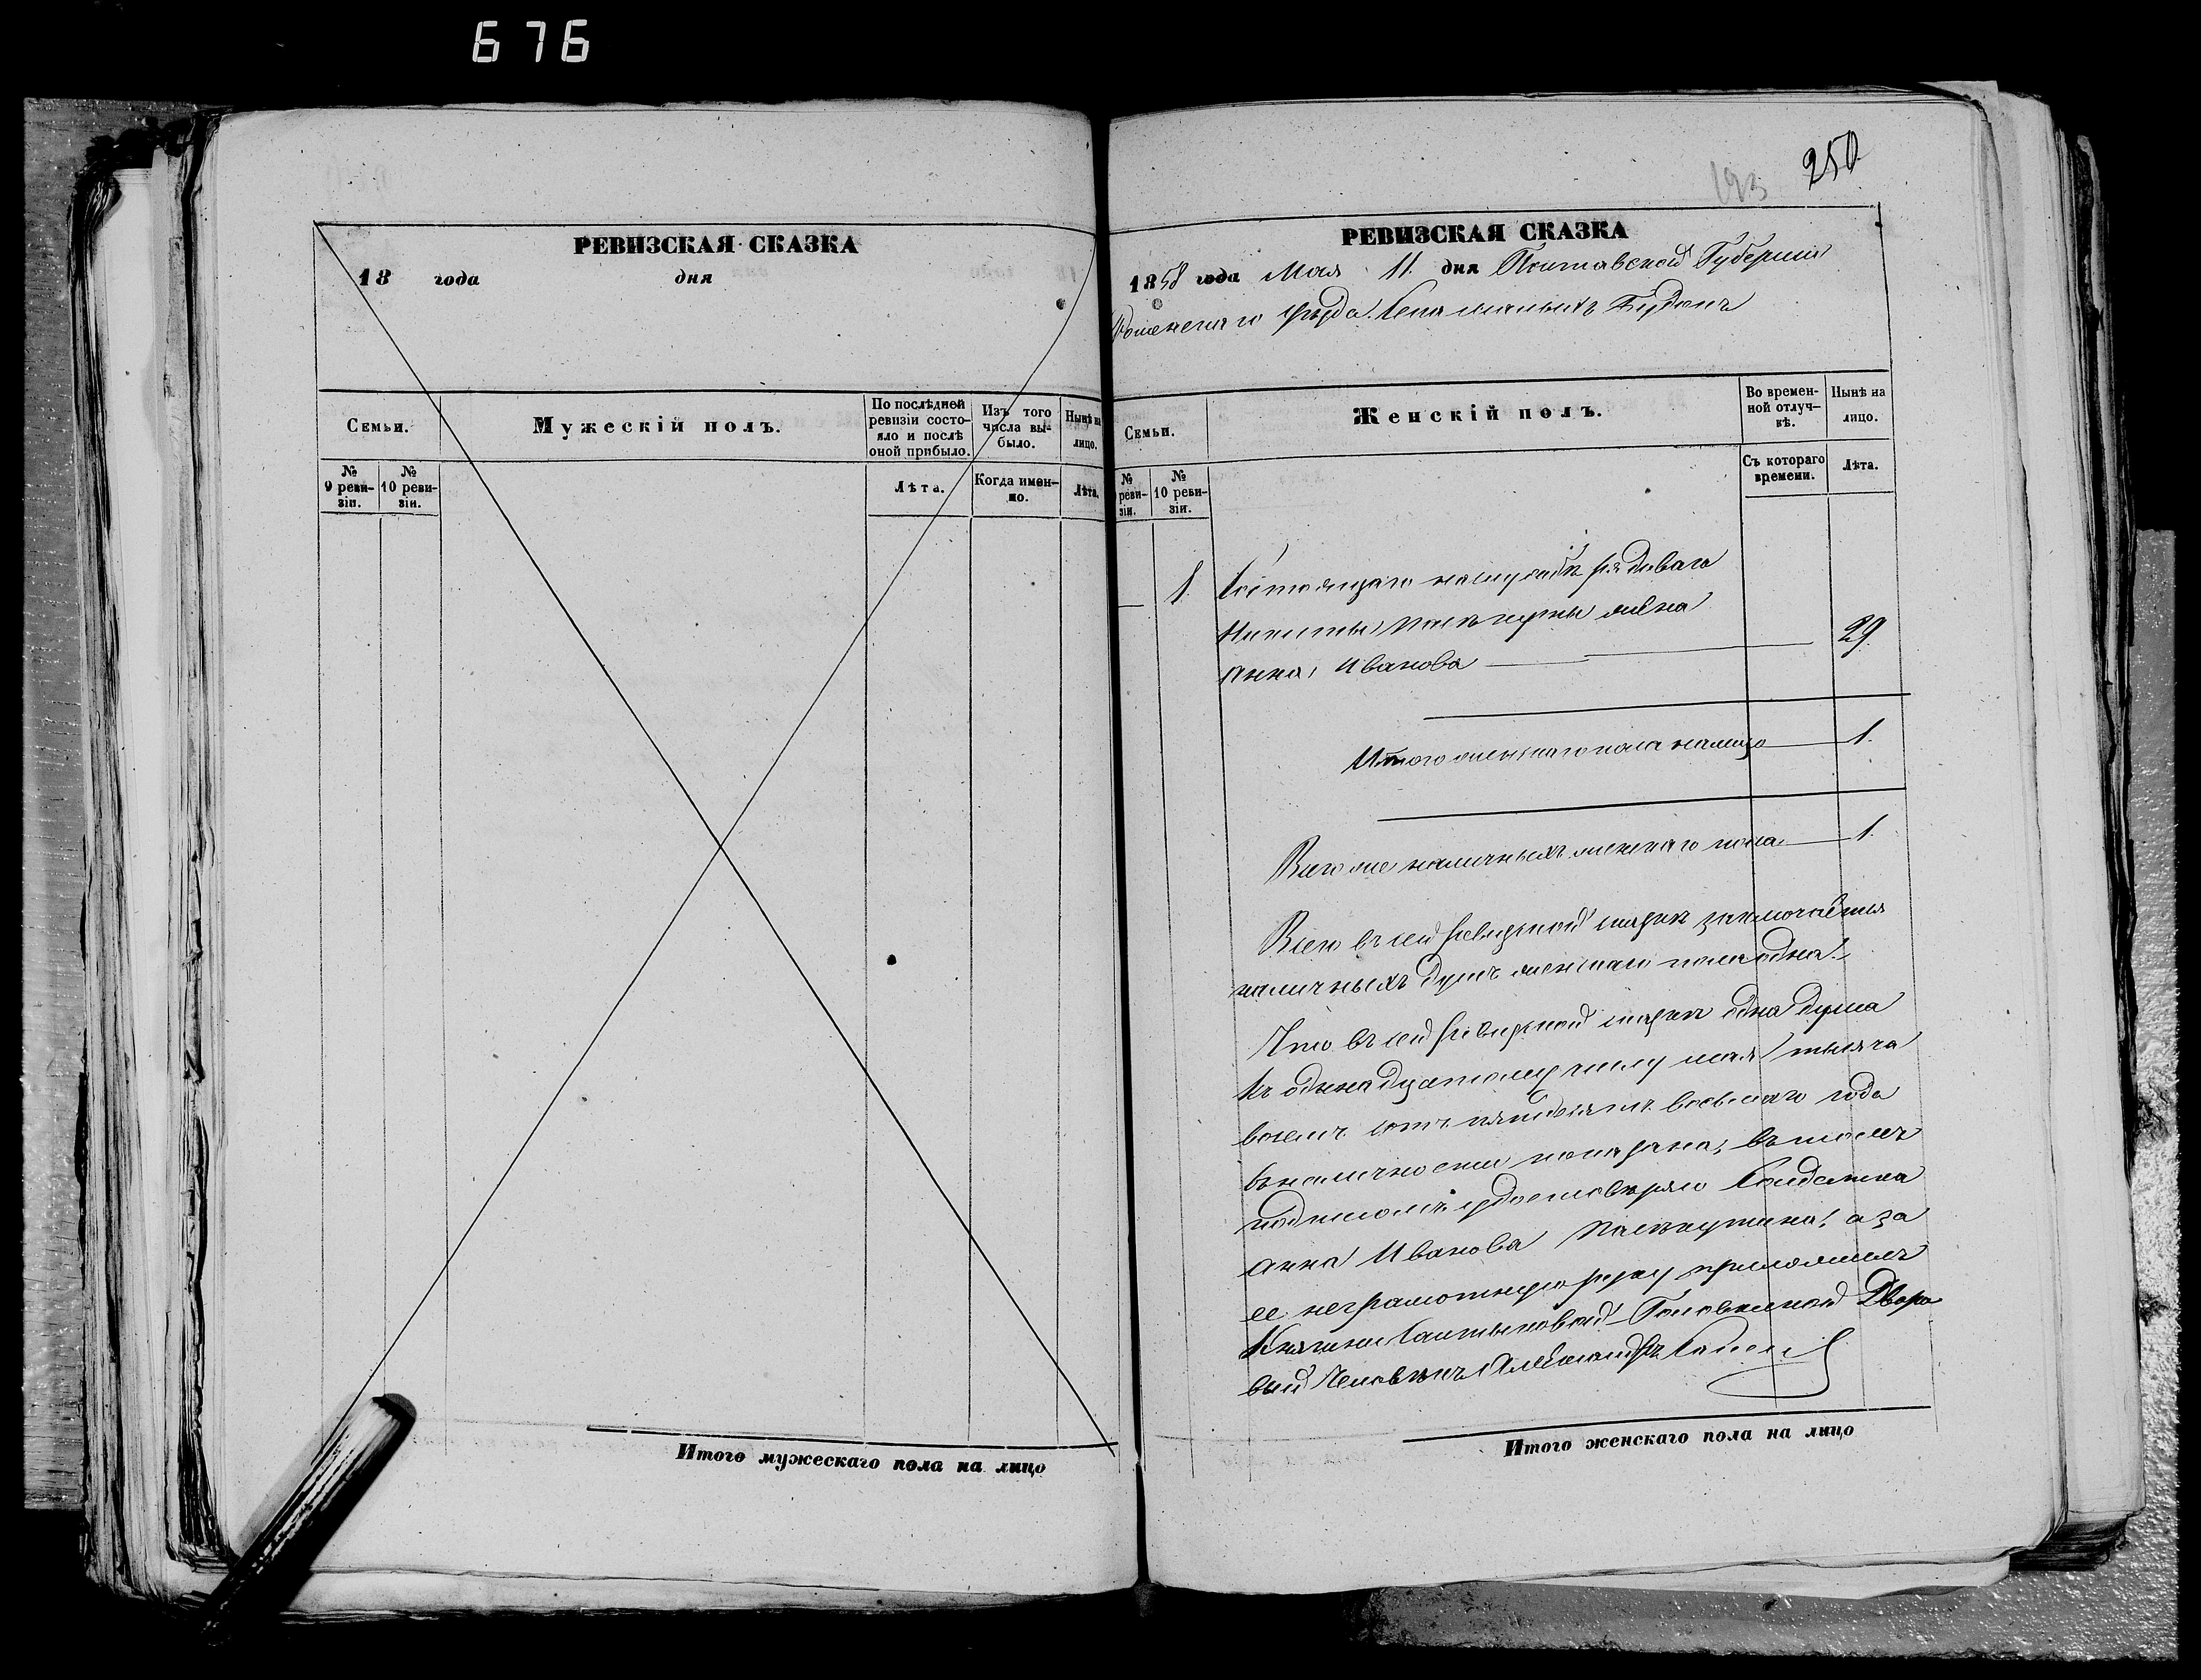 676
РЕВИЗСКАЯ СКАЗКА
18 года дня
Семьи.
Мужескій полъ.
По послѣдней ревизіи состояло и послѣ оной прибыло.
Изъ того числа выбыло.
Нынѣ на лицо.
№ 9 ревизіи.
№ 10 ревизіи.
Лѣта.
Когда именно.
Лѣта.
Итого мужескаго пола на лицо
193
250
РЕВИЗСКАЯ СКАЗКА
1858 года Мая 11. дня Полтавской Губерніи
Роменскаго уѣзда
Семьи.
Женскій полъ.
Во временной отлучкѣ.
Нынѣ на лицо.
№ ревизіи.
№ 10 ревизіи.
Съ котораго времени.
Лѣта.
1. Состоящаго на службѣ рядоваго
Никиты жена
Анна Иванова 29
Итого женскаго пола налицо 1.
Всего же наличныхъ женскаго пола 1.
Всего въ сей ревизкой сказкѣ заключается
наличныхъ душъ женскаго пола одна.
Что въ сей ревизкой сказкѣ одна душа
къ одинадцатому числу мая тысяча
восемъ сотъ пятдесятъ восьмаго года
въ наличности показана, въ томъ
подписомъ удостовѣряю Солдатка
Анна Иванова а за
ее неграмотную руку приложилъ
Княгини Салтыковой-Головкиной Дворо
вый Человѣкъ Александръ
Итого женскаго пола на лицо